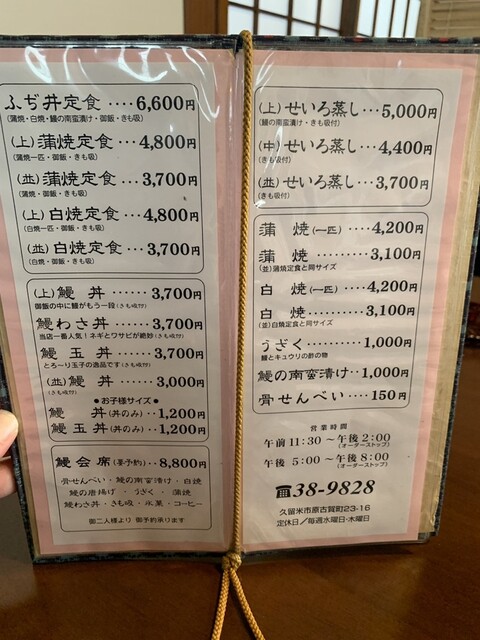 ふぢ丼定食 ････ 6,600円
(蒲焼・白焼・鰻の南蛮漬け・御飯・きも吸)
(上) 蒲焼定食 ･･･ 4,800円
(蒲焼一匹・御飯・きも吸)
(並) 蒲焼定食 ･･･ 3,700円
(蒲焼・御飯・きも吸)
(上) 白焼定食 ･･･ 4,800円
(白焼一匹・御飯・きも吸)
(並) 白焼定食 ･･･ 3,700円
(白焼・御飯・きも吸)
(上) 鰻 丼 ･･････ 3,700円
御飯の中に鰻がもう一段(きも吸付)
鰻わさ丼 ･･････ 3,700円
当店一番人気!ネギとワサビが絶妙(きも吸付)
鰻玉丼 ･･････ 3,700円
とろ〜り玉子の逸品です(きも吸付)
(並) 鰻 丼 ･･････ 3,000円
(きも吸付)
●お子様サイズ●
鰻 丼(丼のみ)･･ 1,200円
鰻玉丼(丼のみ)･･ 1,200円
鰻会席(要予約)･･ 8,800円
骨せんべい・鰻の南蛮漬け・白焼
鰻の唐揚げ・うざく・蒲焼
鰻わさ丼・きも吸・氷菓・コーヒー
御二人様より 御予約承ります
(上) せいろ蒸し ･･･ 5,000円
(鰻の南蛮漬け・きも吸付)
(中) せいろ蒸し ･･･ 4,400円
(きも吸付)
(並) せいろ蒸し ･･･ 3,700円
(きも吸付)
蒲 焼(一匹) ･･･ 4,200円
蒲 焼 ････････ 3,100円
(並)蒲焼定食と同サイズ
白 焼(一匹) ･･･ 4,200円
白 焼 ････････ 3,100円
(並)白焼定食と同サイズ
うざく ････････ 1,000円
鰻とキュウリの酢の物
鰻の南蛮漬け ･･ 1,000円
骨せんべい ････ 150円
営業時間
午前11:30〜午後2:00
(オーダーストップ)
午後 5:00〜午後8:00
(オーダーストップ)
☎38-9828
久留米市原古賀町23-16
定休日/毎週水曜日・木曜日